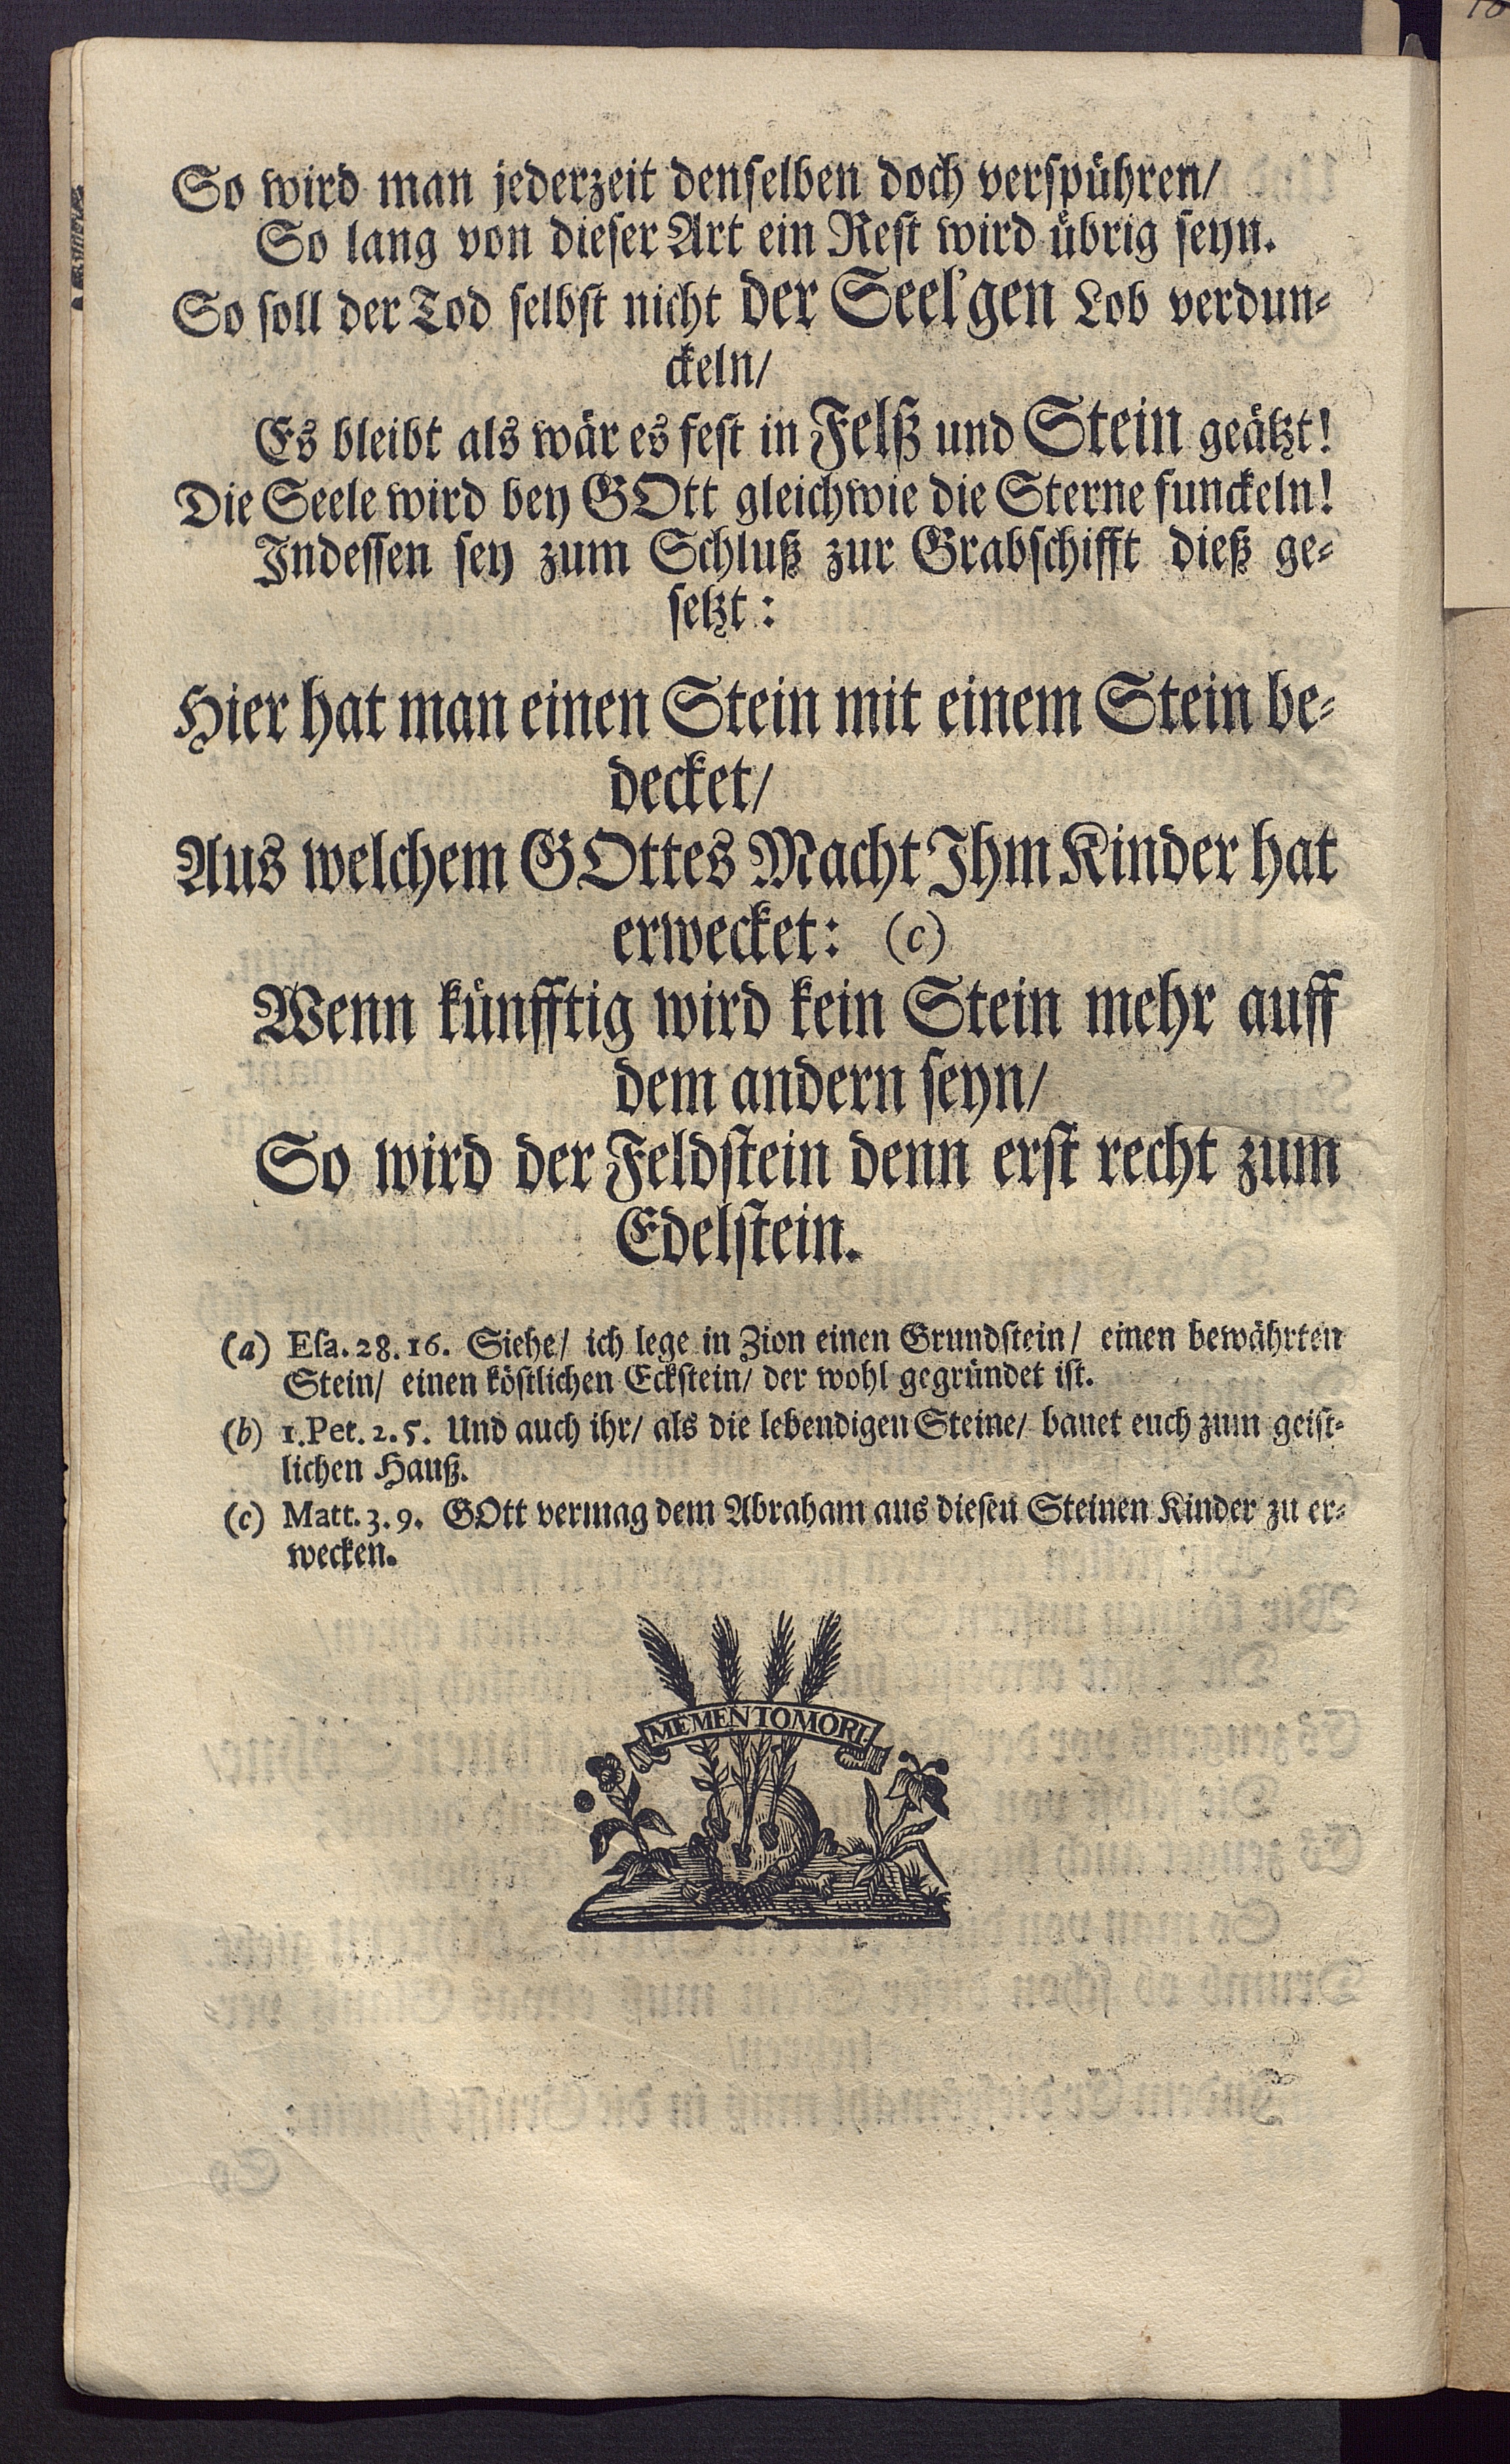 So wird man jederzeit denselben doch verspühren/
So lang von dieser Art ein Rest wird übrig seyn.
So soll der Tod selbst nicht der Seel'gen Lob verdun-
ckeln/
Es bleibt als wär es fest in Felß und Stein geätzt!
Die Seele wird bey GOtt gleichwie die Sterne funckeln!
Indessen sey zum Schluß zur Grabschifft dieß ge-
setzt:
Hier hat man einen Stein mit einem Stein be-
decket/
Aus welchem GOttes Macht Ihm Kinder hat
erwecket: (c)
Wenn künfftig wird kein Stein mehr auff
dem andern seyn/
So wird der Feldstein denn erst recht zum
Edelstein.
(a) Esa. 28. 16. Siehe/ ich lege in Zion einen Grundstein/ einen bewährten
Stein/ einen köstlichen Eckstein/ der wohl gegründet ist.
(b) 1. Pet. 2. 5. Und auch ihr/ als die lebendigen Steine/ bauet euch zum geist-
lichen Hauß.
(c) Matt. 3. 9. GOtt vermag dem Abraham aus diesen Steinen Kinder zu er-
wecken.
MEMENTO MORI.